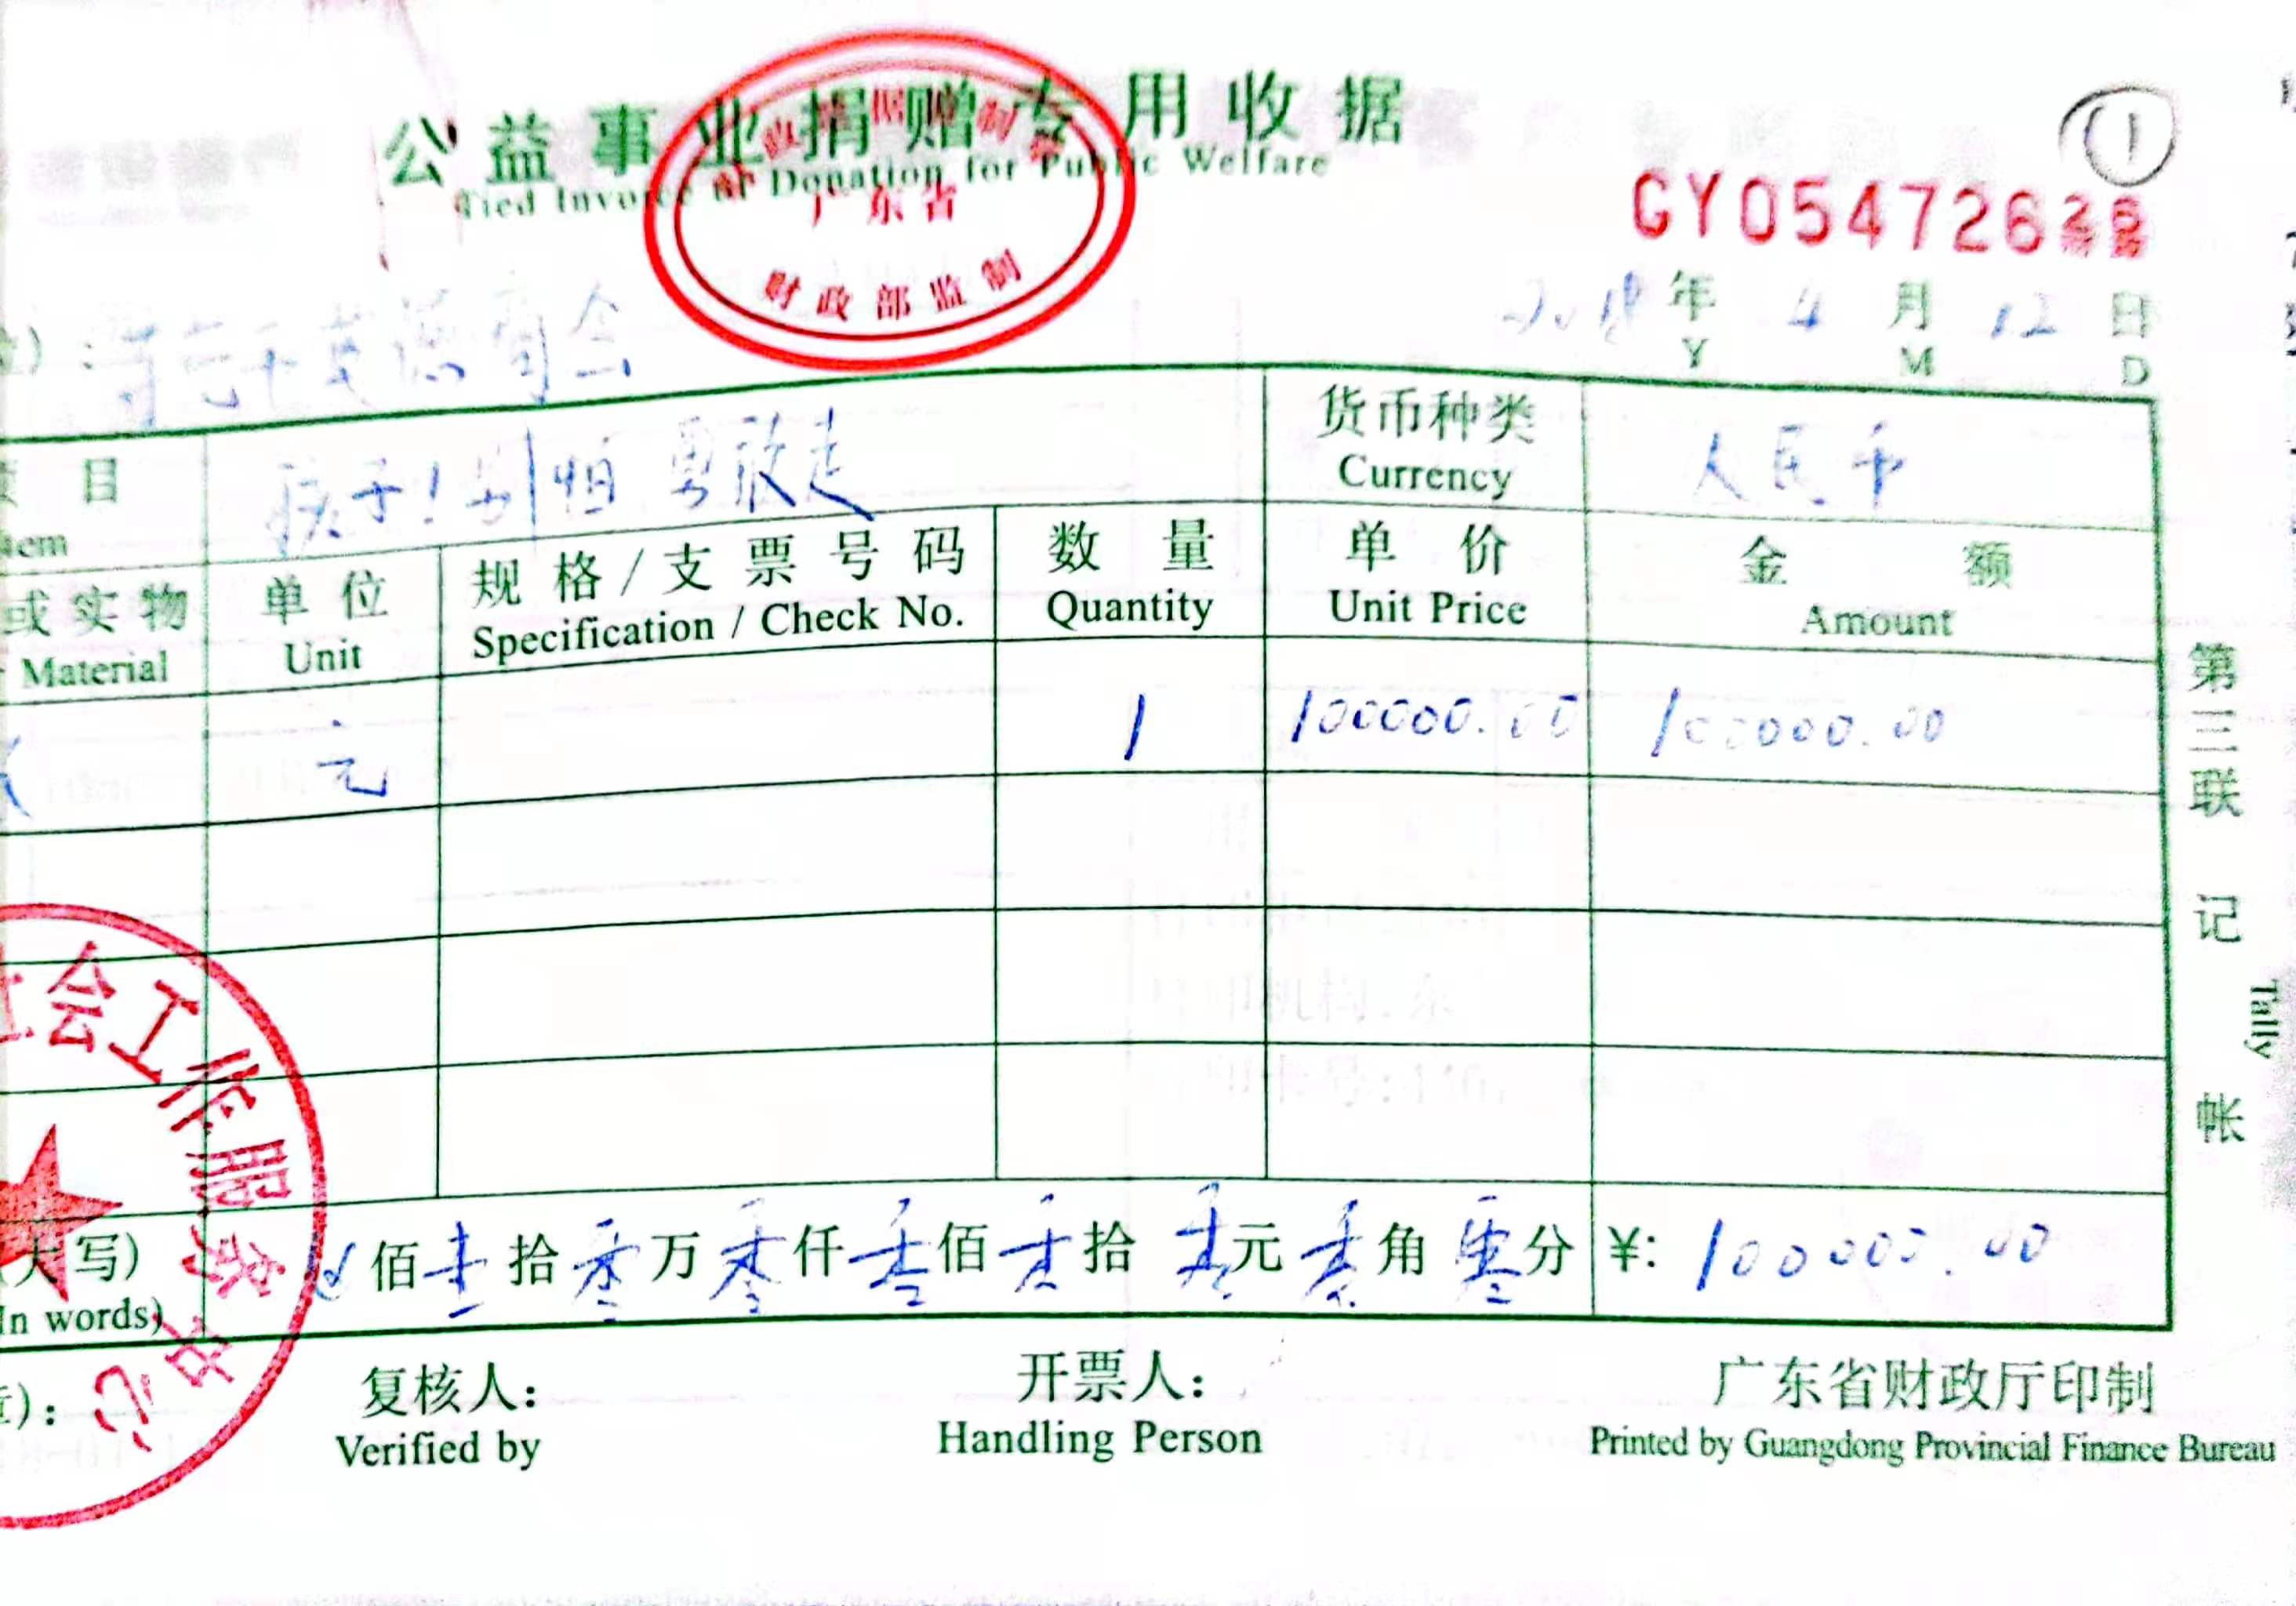 公益事业捐赠专用收据
Tied Invoice of Donation for Public Welfare
广东省
财政部监制
①
GY054726
年 4 月 12 日
Y M D
商会
项目 孩子！别怕 勇敢走 货币种类 人民币
Currency
或实物 单位 规格/支票号码 数量 单价 金额
Material Unit Specification / Check No. Quantity Unit Price Amount
元 1 100000.00 100000.00
第三联 记帐
Tally
社会工作服务中心
大写) 佰壹拾零万零仟零佰零拾零元零角零分 ¥: 100000.00
In words)
复核人: 开票人: 广东省财政厅印制
Verified by Handling Person Printed by Guangdong Provincial Finance Bureau